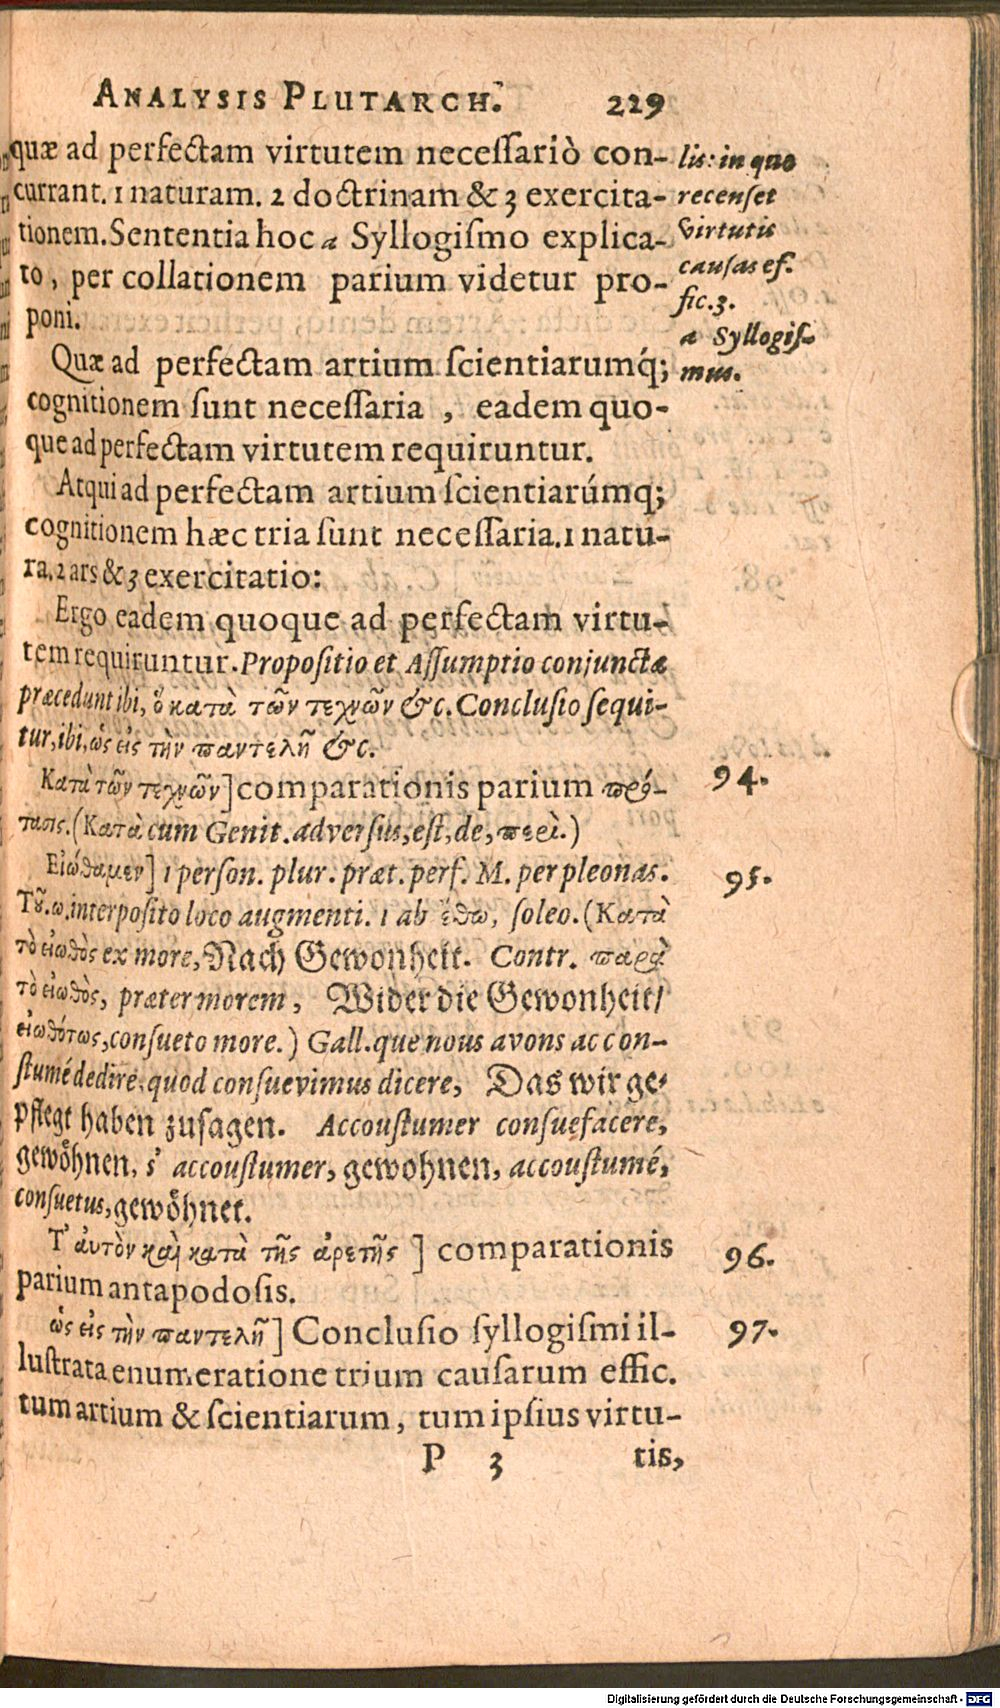 ANALYSIS PLUTARCH. 229
quæ ad perfectam virtutem neceſſariò con-
currant. 1 naturam. 2 doctrinam & 3 exercita-
tionem. Sententia hoc a Syllogiſmo explica-
to, per collationem parium videtur pro-
poni.
lis: in quo
recenſet
virtutis
cauſas ef-
fic. 3.
a Syllogiſ-
mus.
Quæ ad perfectam artium ſcientiarumq́;
cognitionem ſunt neceſſaria, eadem quo-
que ad perfectam virtutem requiruntur.
Atqui ad perfectam artium ſcientiarúmq;
cognitionem hæc tria ſunt neceſſaria. 1 natu-
ra. 2 ars & 3 exercitatio:
Ergo eadem quoque ad perfectam virtu-
tem requiruntur. Propoſitio et Aſſumptio conjunctæ
præcedunt ibi, ὃ κατὰ τῶν τεχνῶν &c. Concluſio ſequi-
tur, ibi, ὡς εἰς τὴν παντελῆ &c.
Κατὰ τῶν τεχνῶν] comparationis parium πρό-
τασις. (Κατὰ cum Genit. adverſus, eſt, de, περὶ.)
94.
Εἰώθαμεν] 1 perſon. plur. præt. perf. M. per pleonas.
Τȣ̃. ω. interpoſito loco augmenti. 1 ab ἔθω, ſoleo. (Κατὰ
τὸ εἰωθὸς ex more, Nach Gewonheit. Contr. παρὰ
τὸ εἰωθὸς, præter morem, Wider die Gewonheit/
εἰωθότως, conſueto more.) Gall. que nous avons accon-
ſtumé de dire. quod conſuevimus dicere, Das wir ge-
pflegt haben zuſagen. Accouſtumer conſuefacere,
gewöhnen, s' accouſtumer, gewohnen, accouſtumé,
conſuetus, gewöhnet.
95.
Τ' ἀυτὸν καὶ κατὰ τῆς ἀρετῆς ] comparationis
parium antapodosis.
96.
ὡς εἰς τὴν παντελῆ] Concluſio ſyllogiſmi il-
luſtrata enumeratione trium cauſarum effic.
tum artium & ſcientiarum, tum ipſius virtu-
97.
P 3 tis,
Digitalisierung gefördert durch die Deutsche Forschungsgemeinschaft - DFG